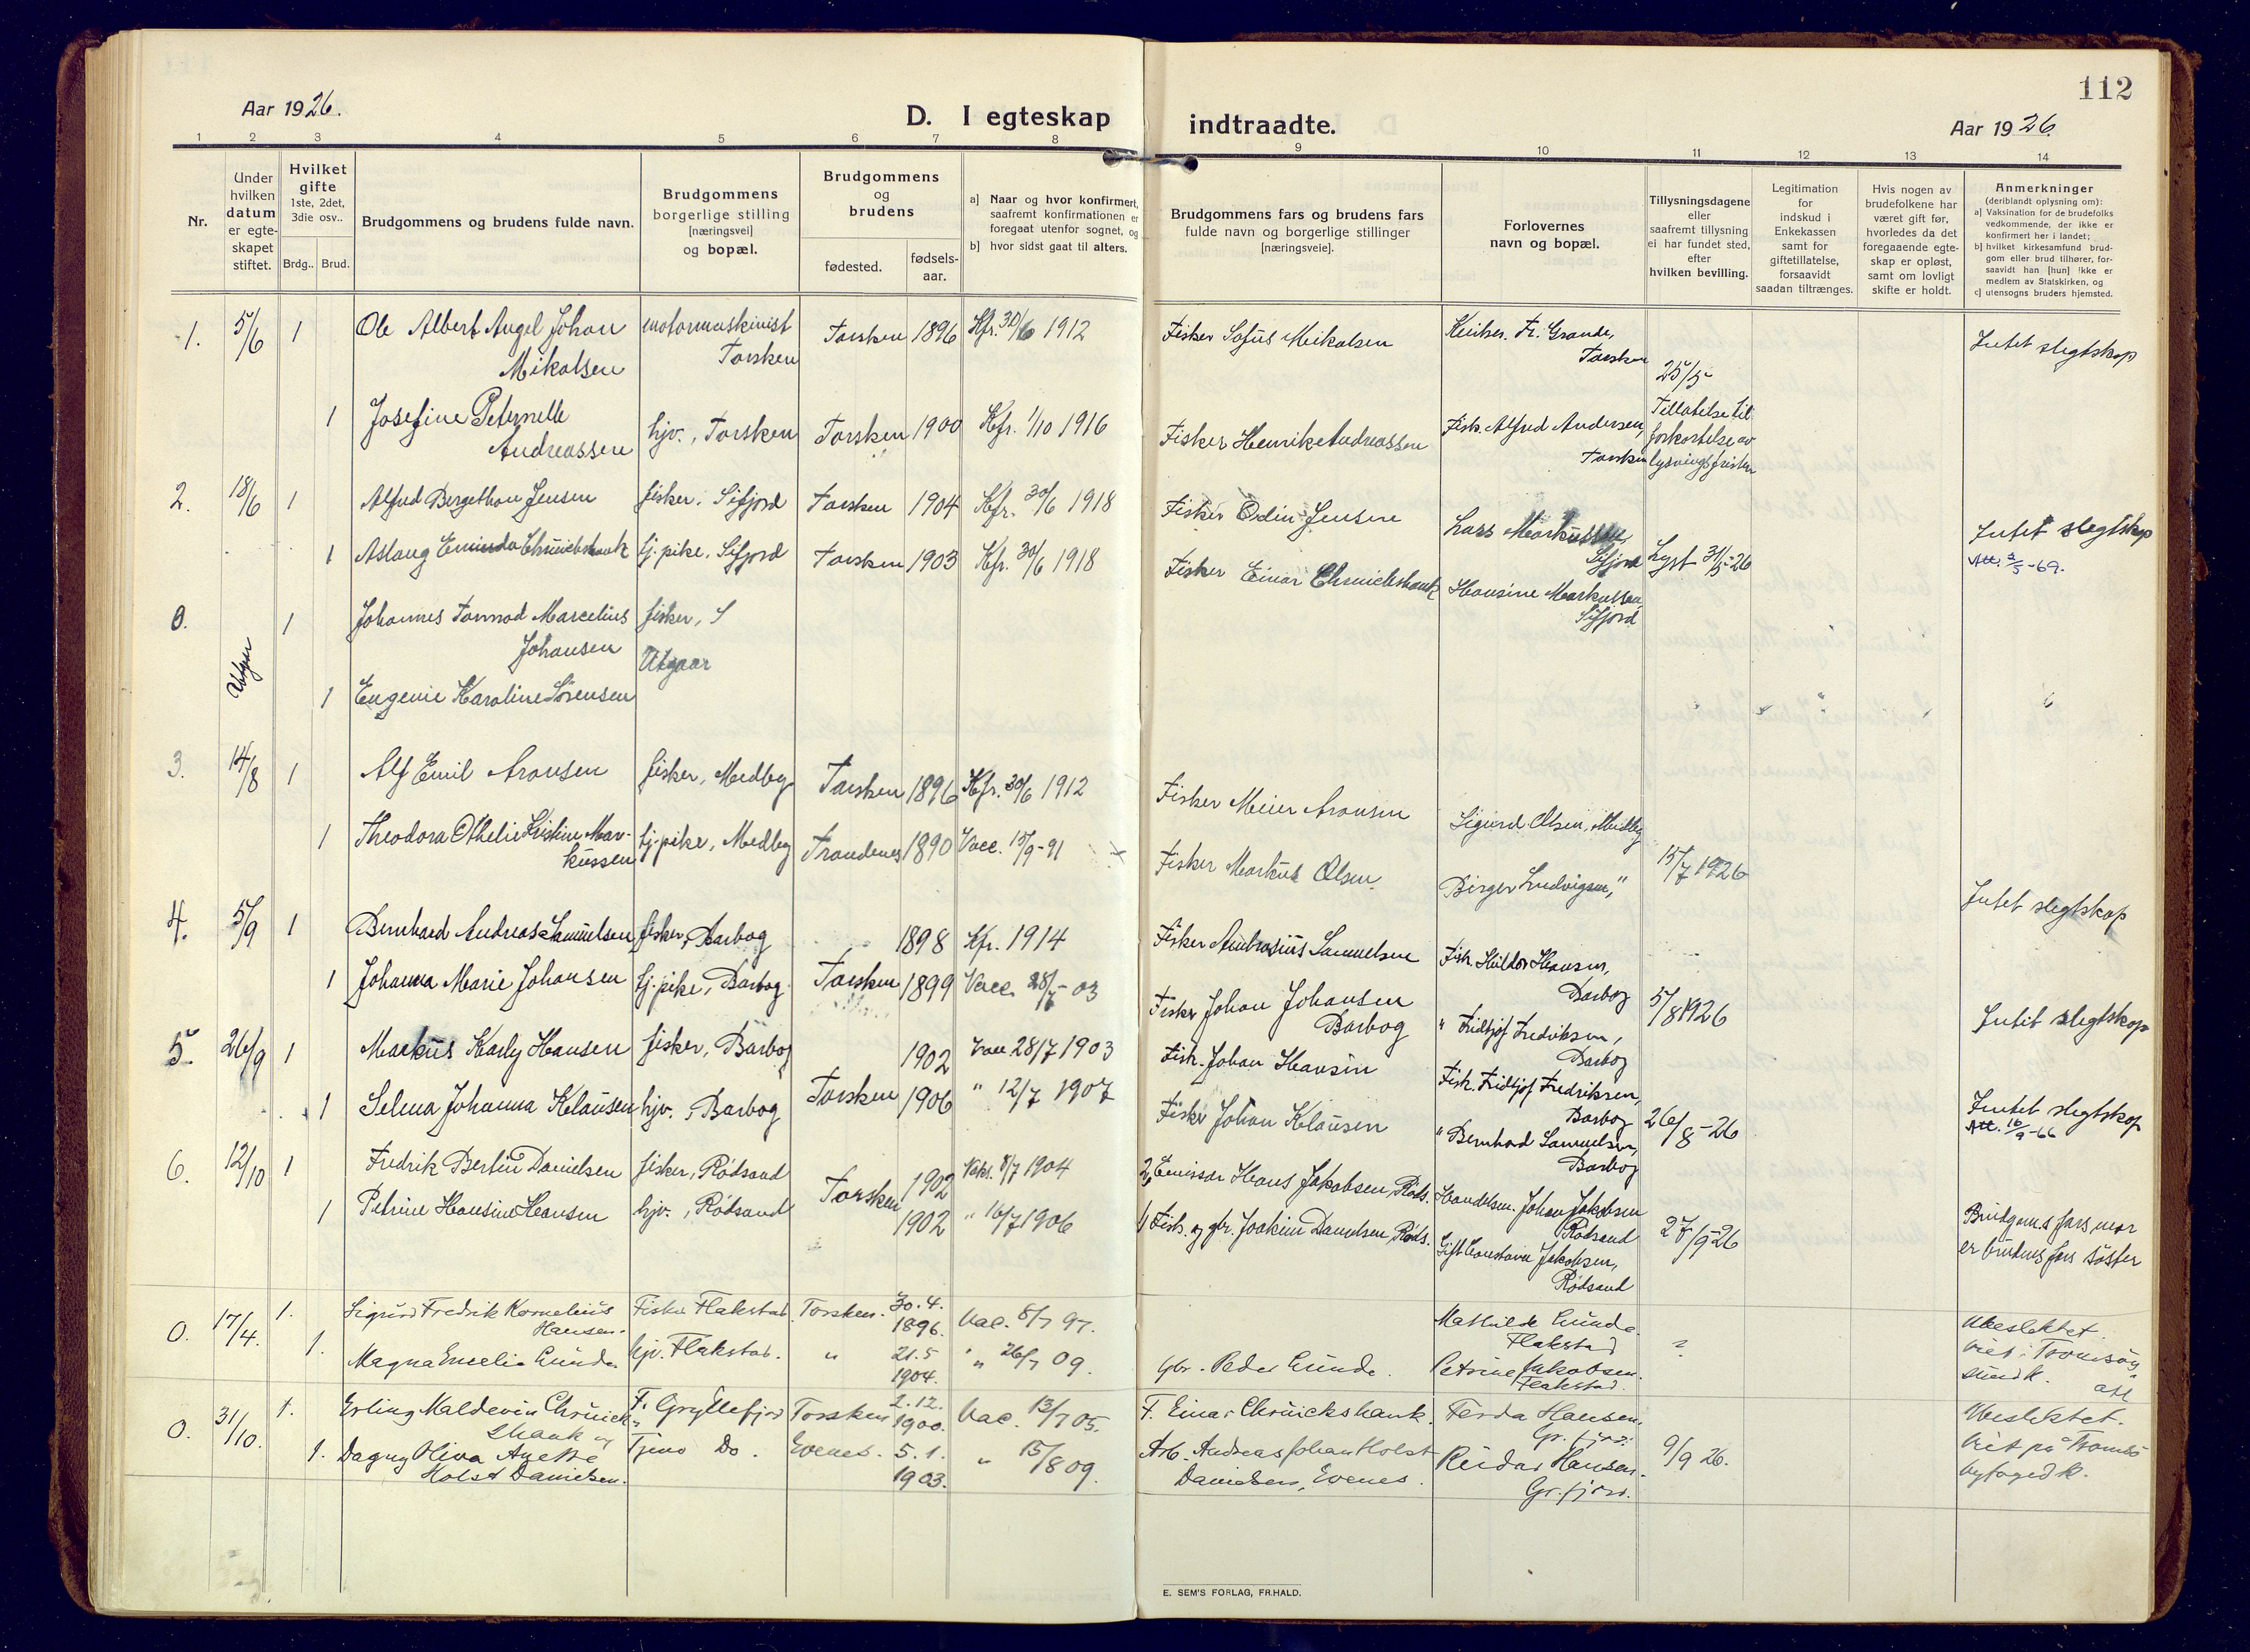 112
Aar 1926.
D. I egteskap
indtraadte.
Aar 1926.
1 2 3 4 5 6 7 8 9 10 11 12 13 14
Nr.
Under hvilken datum er egte-skapet stiftet.
Hvilket gifte
1ste, 2det, 3die osv..
Brdg.. Brud.
Brudgommens og brudens fulde navn.
Brudgommens borgerlige stilling [næringsvei] og bopæl.
Brudgommens og brudens
fødested.
fødsels-aar.
a] Naar og hvor konfirmert, saafremt konfirmationen er foregaat utenfor sognet, og
b] hvor sidst gaat til alters.
Brudgommens fars og brudens fars fulde navn og borgerlige stillinger [næringsveie].
Forlovernes navn og bopæl.
Tillysningsdagene eller saafremt tillysning ei har fundet sted, efter hvilken bevilling.
Legitimation for indskud i Enkekassen samt for giftetillatelse, forsaavidt saadan tiltrænges.
Hvis nogen av brudefolkene har været gift før, hvorledes da det foregaaende egte-skap er opløst, samt om lovligt skifte er holdt.
Anmerkninger
(deriblandt oplysning om):
a] Vaksination for de brudefolks vedkommende, der ikke er konfirmert her i landet;
b] hvilket kirkesamfund brud-gom eller brud tilhører, for-saavidt han [hun] ikke er medlem av Statskirken, og
c] utensogns bruders hjemsted.
1. 5/6 1 Ole Albert Angel Johan Mikalsen motormaskinist Torsken Torsken 1896 Kfr. 30/6 1912 Fisker Sofus Mikalsen Fr. Grande, Torsken Intet slegtskap
1 Josefine Petynelle Andreassen hjv., Torsken Torsken 1900 Kfr. 1/10 1916 Fisker Henrik Andreassen Fisk. Alfred Andersen, Torsken 25/5 Tillatelse til forkortelse av lysningsfristen
2. 18/6 1 Alfred Bergethon Jensen fisker, Sifjord Torsken 1904 Kfr. 30/6 1918 Fisker Odin Jensen Lars Markussen, Sifjord Intet slegtskap
1 Aslaug Eminda Chruickshank tj. pike, Sifjord Torsken 1903 Kfr. 30/6 1918 Fisker Einar Chruickshank Hansine Markussen, Sifjord Lyst 31/5-26 Att. 2/5-69.
0. Utgaar 1 Johannes Tormod Marcelius Johansen fisker, S
Utgaar
1 Eugenie Karoline Sørensen
3. 14/8 1 Alf Emil Aronsen fisker, Medby Torsken 1896 Kfr. 30/6 1912 Fisker Meier Aronsen Sigurd Olsen, Medby
1 Theodora Othelie Kristine Mar-kussen tj. pike, Medby Trondenes 1890 Vacc. 15/9-91 Fisker Markus Olsen Birger Ludvigsen, " 15/7 1926 Intet slegtskap
4. 5/9 1 Bernhard Andreas Samuelsen fisker, Barbog 1898 Kfr. 1914 Fisker Ambrosius Samuelsen Fisk. Huldor Hansen, Barbog
1 Johanna Marie Johansen tj. pike, Barbog Torsken 1899 Vacc. 28/7-03 Fisker Johan Johansen Barbog " Fridtjof Fredriksen, Barbog 5/8 1926 Intet slegtskap
5. 26/9 1 Markus Karly Hansen fisker, Barbog Torsken 1902 Vacc 28/7 1903 Fisk. Johan Hansen Fisk. Fridtjof Fredriksen, Barbog
1 Selma Johanna Klausen hjv., Barbog 1906 " 12/7 1907 Fisker Johan Klausen " Bernhard Samuelsen, Barbog 26/8-26 Intet slegtskap
Att. 16/9-66
6. 12/10 1 Fredrik Bertin Danielsen fisker, Rødsand Torsken 1902 Vaks. 8/7 1904 2) Emissær Hans Jakobsen, Røds. Handelsm. Johan Jakobsen Rødsand
1 Petrine Hansine Hansen hjv., Rødsand 1902 " 16/7 1906 1) Fisk. og gbr. Joakim Danielsen, Røds. Gift Jakobsen, Rødsand 27/9-26 Brudgoms fars mor er brudens fars søster
0. 17/4. 1. Sigurd Fredrik Kornelius Hansen. Fisker Flakstad. Torsken. 30.4. 1896. Vac. 8/7 97. Mathilde Lunde. Flakstad ? Ubeslektet.
1. Magna Emelie Lunde. hjv. Flakstad. " 21.5 1904. " 26/7 09. Gbr. Peder Lunde. Petrine Jakobsen. Flakstad. viet i Tromsøy-sund k. att
0. 31/10. 1. Erling Maldevin Chruick-shank og F. Gryllefjord Torsken 2.12. 1900. Vac. 13/7 05. F. Einar Chruickshank. Ferda Hansen. Gr. fjord. 9/9 26. Ubeslektet.
1. Dagny Oliva Anette Holst Danielsen. Tjene Do. Evenes. 5.1. 1903. " 15/8 09. Arb. Andreas Johan Holst Danielsen, Evenes. Reidar Hansen. Gr. fjord. Viet på Tromsø byfoged k.
E. SEM'S FORLAG, FR.HALD.